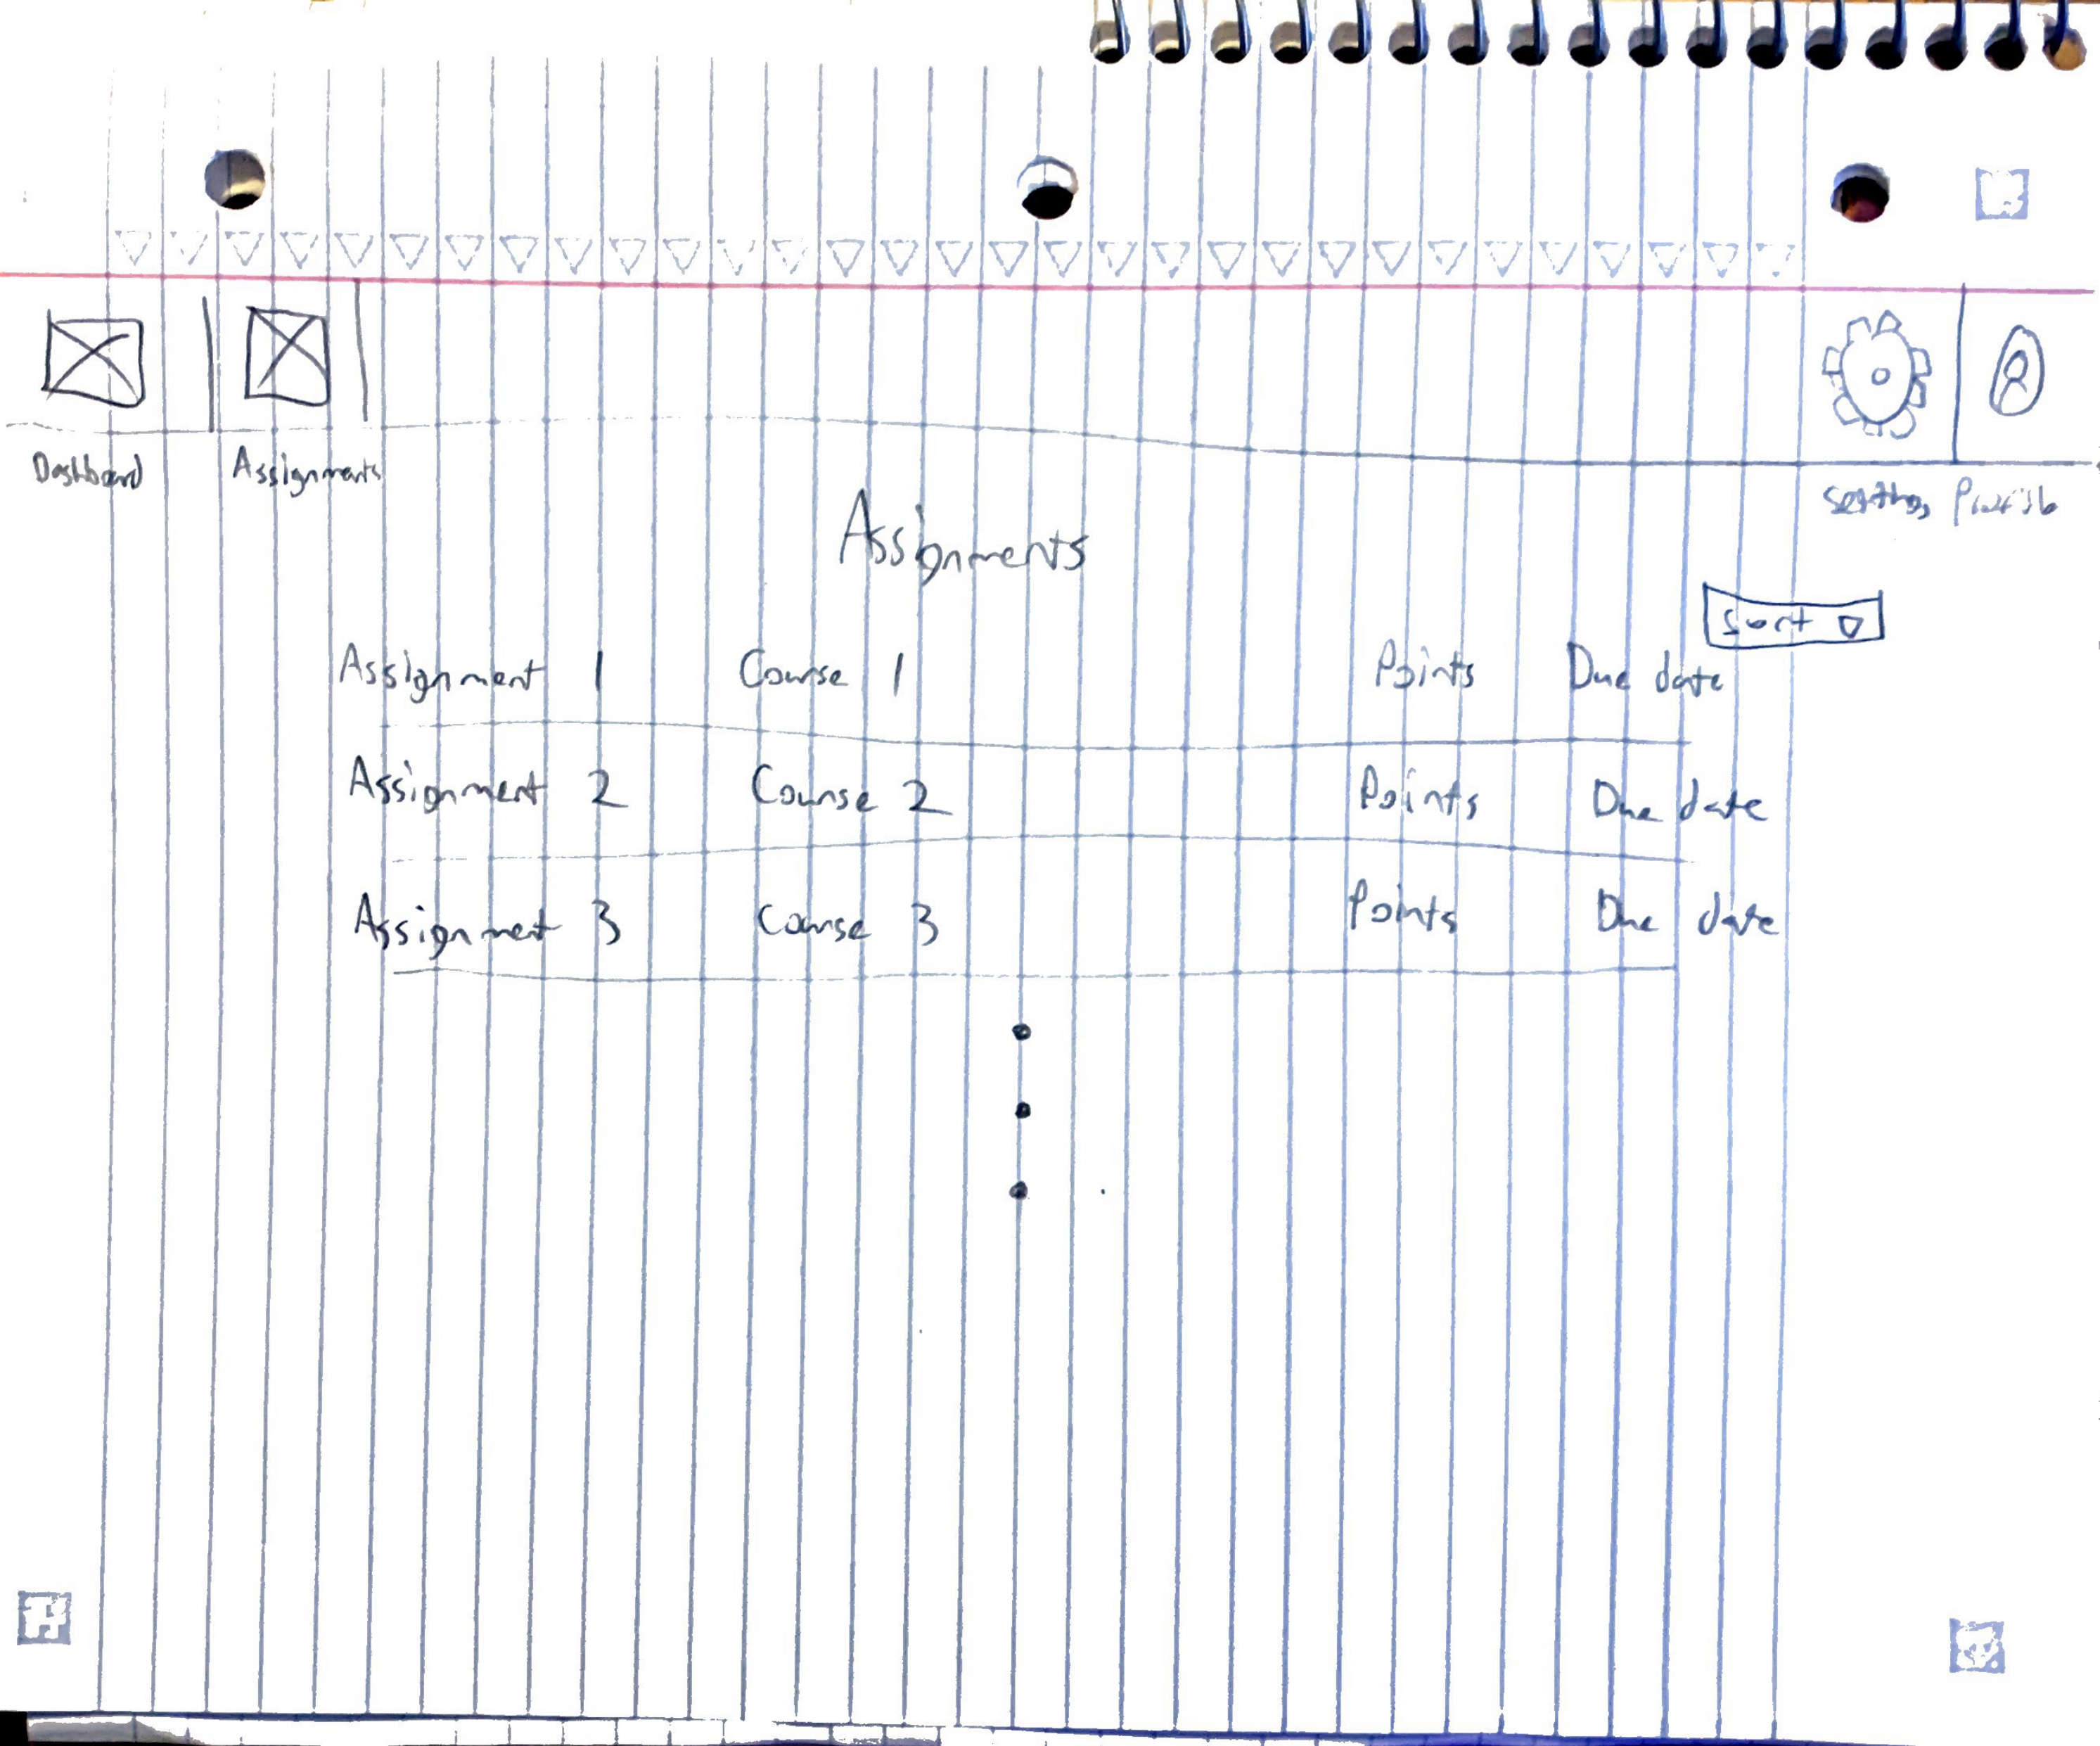 Dashboard Assignments
Settings Profile
Assignments
Sort
Assignment 1 Course 1 Points Due date
Assignment 2 Course 2 Points Due date
Assignment 3 Course 3 Points Due date